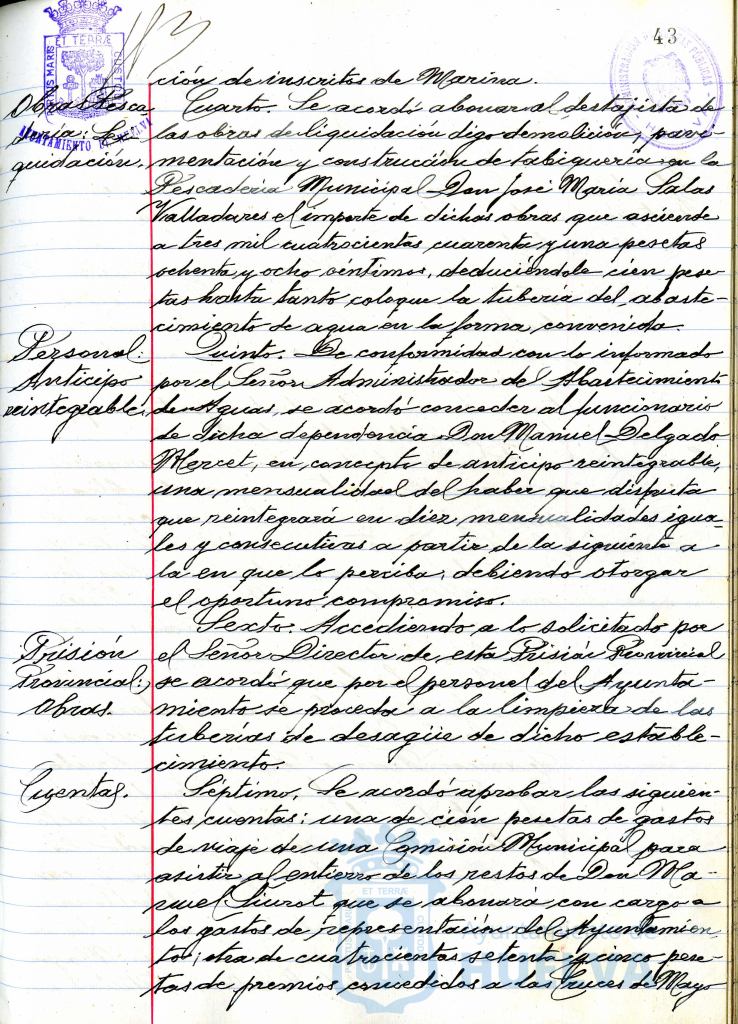 43
ción de inscritos de Marina.
Obras Pesca
dería: Li-
quidación.
AYUNTAMIENTO DE HUELVA
Cuarto. Se acordó abonar al destajista de
las obras de liquidación digo demolición, pavi-
mentación y construcción de tabiquería en la
Pescadería Municipal Don José María Salas
Valladares el importe de dichas obras que asciende
a tres mil cuatrocientas cuarenta y una pesetas
ochenta y ocho céntimos, deduciéndole cien pese-
tas hasta tanto coloque la tubería del abaste-
cimiento de agua en la forma convenida.
Personal:
Anticipo
reintegrable.
Quinto. De conformidad con lo informado
por el Señor Administrador de Abastecimiento
de Aguas, se acordó conceder al funcionario
de dicha dependencia Don Manuel Delgado
Mercet, en concepto de anticipo reintegrable,
una mensualidad del haber que disfruta
que reintegrará en diez mensualidades igua-
les y consecutivas a partir de la siguiente a
la en que lo perciba, debiendo otorgar
el oportuno compromiso.
Prisión
Provincial:
Obras.
Sexto. Accediendo a lo solicitado por
el Señor Director de esta Prisión Provincial
se acordó que por el personal del Ayunta-
miento se proceda a la limpieza de las
tuberías de desagüe de dicho estable-
cimiento.
Cuentas.
Séptimo. Se acordó aprobar las siguien-
tes cuentas: una de cien pesetas de gastos
de viaje de una Comisión Municipal para
asistir al entierro de los restos de Don Ma-
nuel Siurot que se abonará con cargo a
los gastos de representación del Ayuntamien-
to; otra de cuatrocientas setenta y cinco pese-
tas de premios concedidos a las Cruces de Mayo
Ayuntamiento de
HUELVA